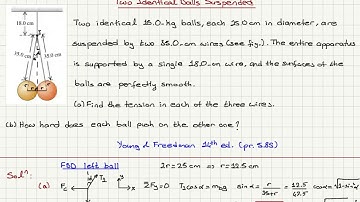 Two Identical Balls Suspended
Two identical 15.0-kg balls, each 25.0 cm in diameter, are
suspended by two 35.0-cm wires (see fig.). The entire apparatus
is supported by a single 18.0-cm wire, and the surfaces of the
balls are perfectly smooth.
(a) Find the tension in each of the three wires.
(b) How hard does each ball push on the other one?
Young & Freedman 14th ed. (pr. 5.85)
18.0 cm
35.0 cm
35.0 cm
r r
Sol'n:
FBD left ball
2r=25 cm ⇒ r=12.5 cm
(a)
Fc
T1
y
x
ΣFy=0 T1cosα=mbg sinα= r/35+r = 12.5/47.5 cosα=√1-sin²α